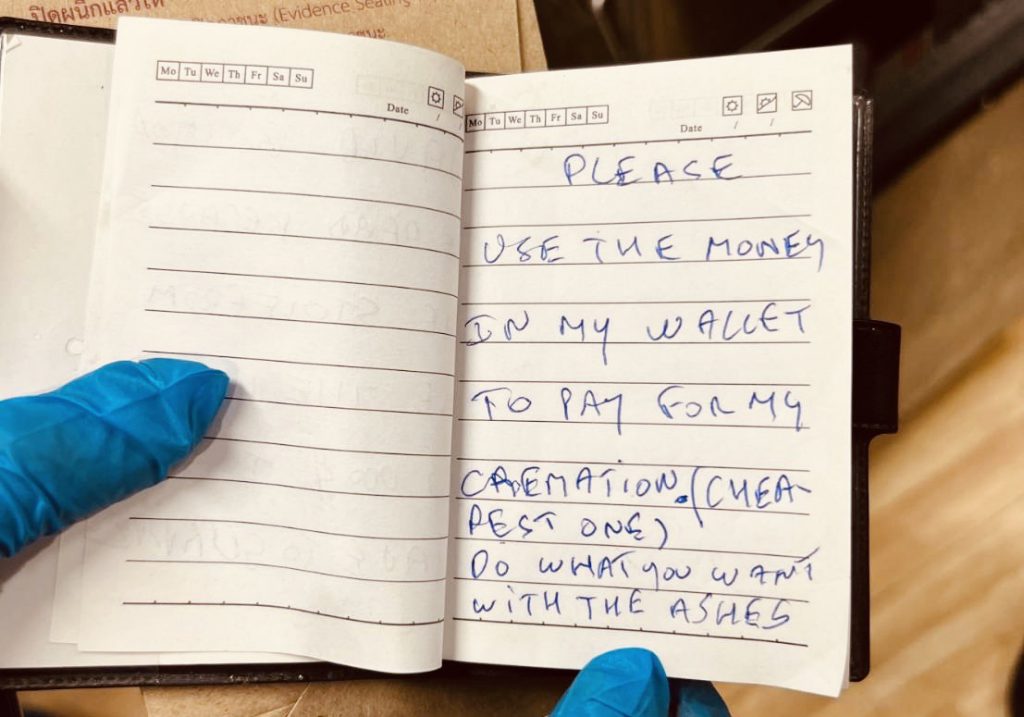 ปิดผนึกแล้วให้
(Evidence Sealing
Mo Tu We Th Fr Sa Su
Date / /
Mo Tu We Th Fr Sa Su
Date / /
PLEASE
USE THE MONEY
IN MY WALLET
TO PAY FOR MY
CREMATION. (CHEA-
PEST ONE)
DO WHAT YOU WANT
WITH THE ASHES